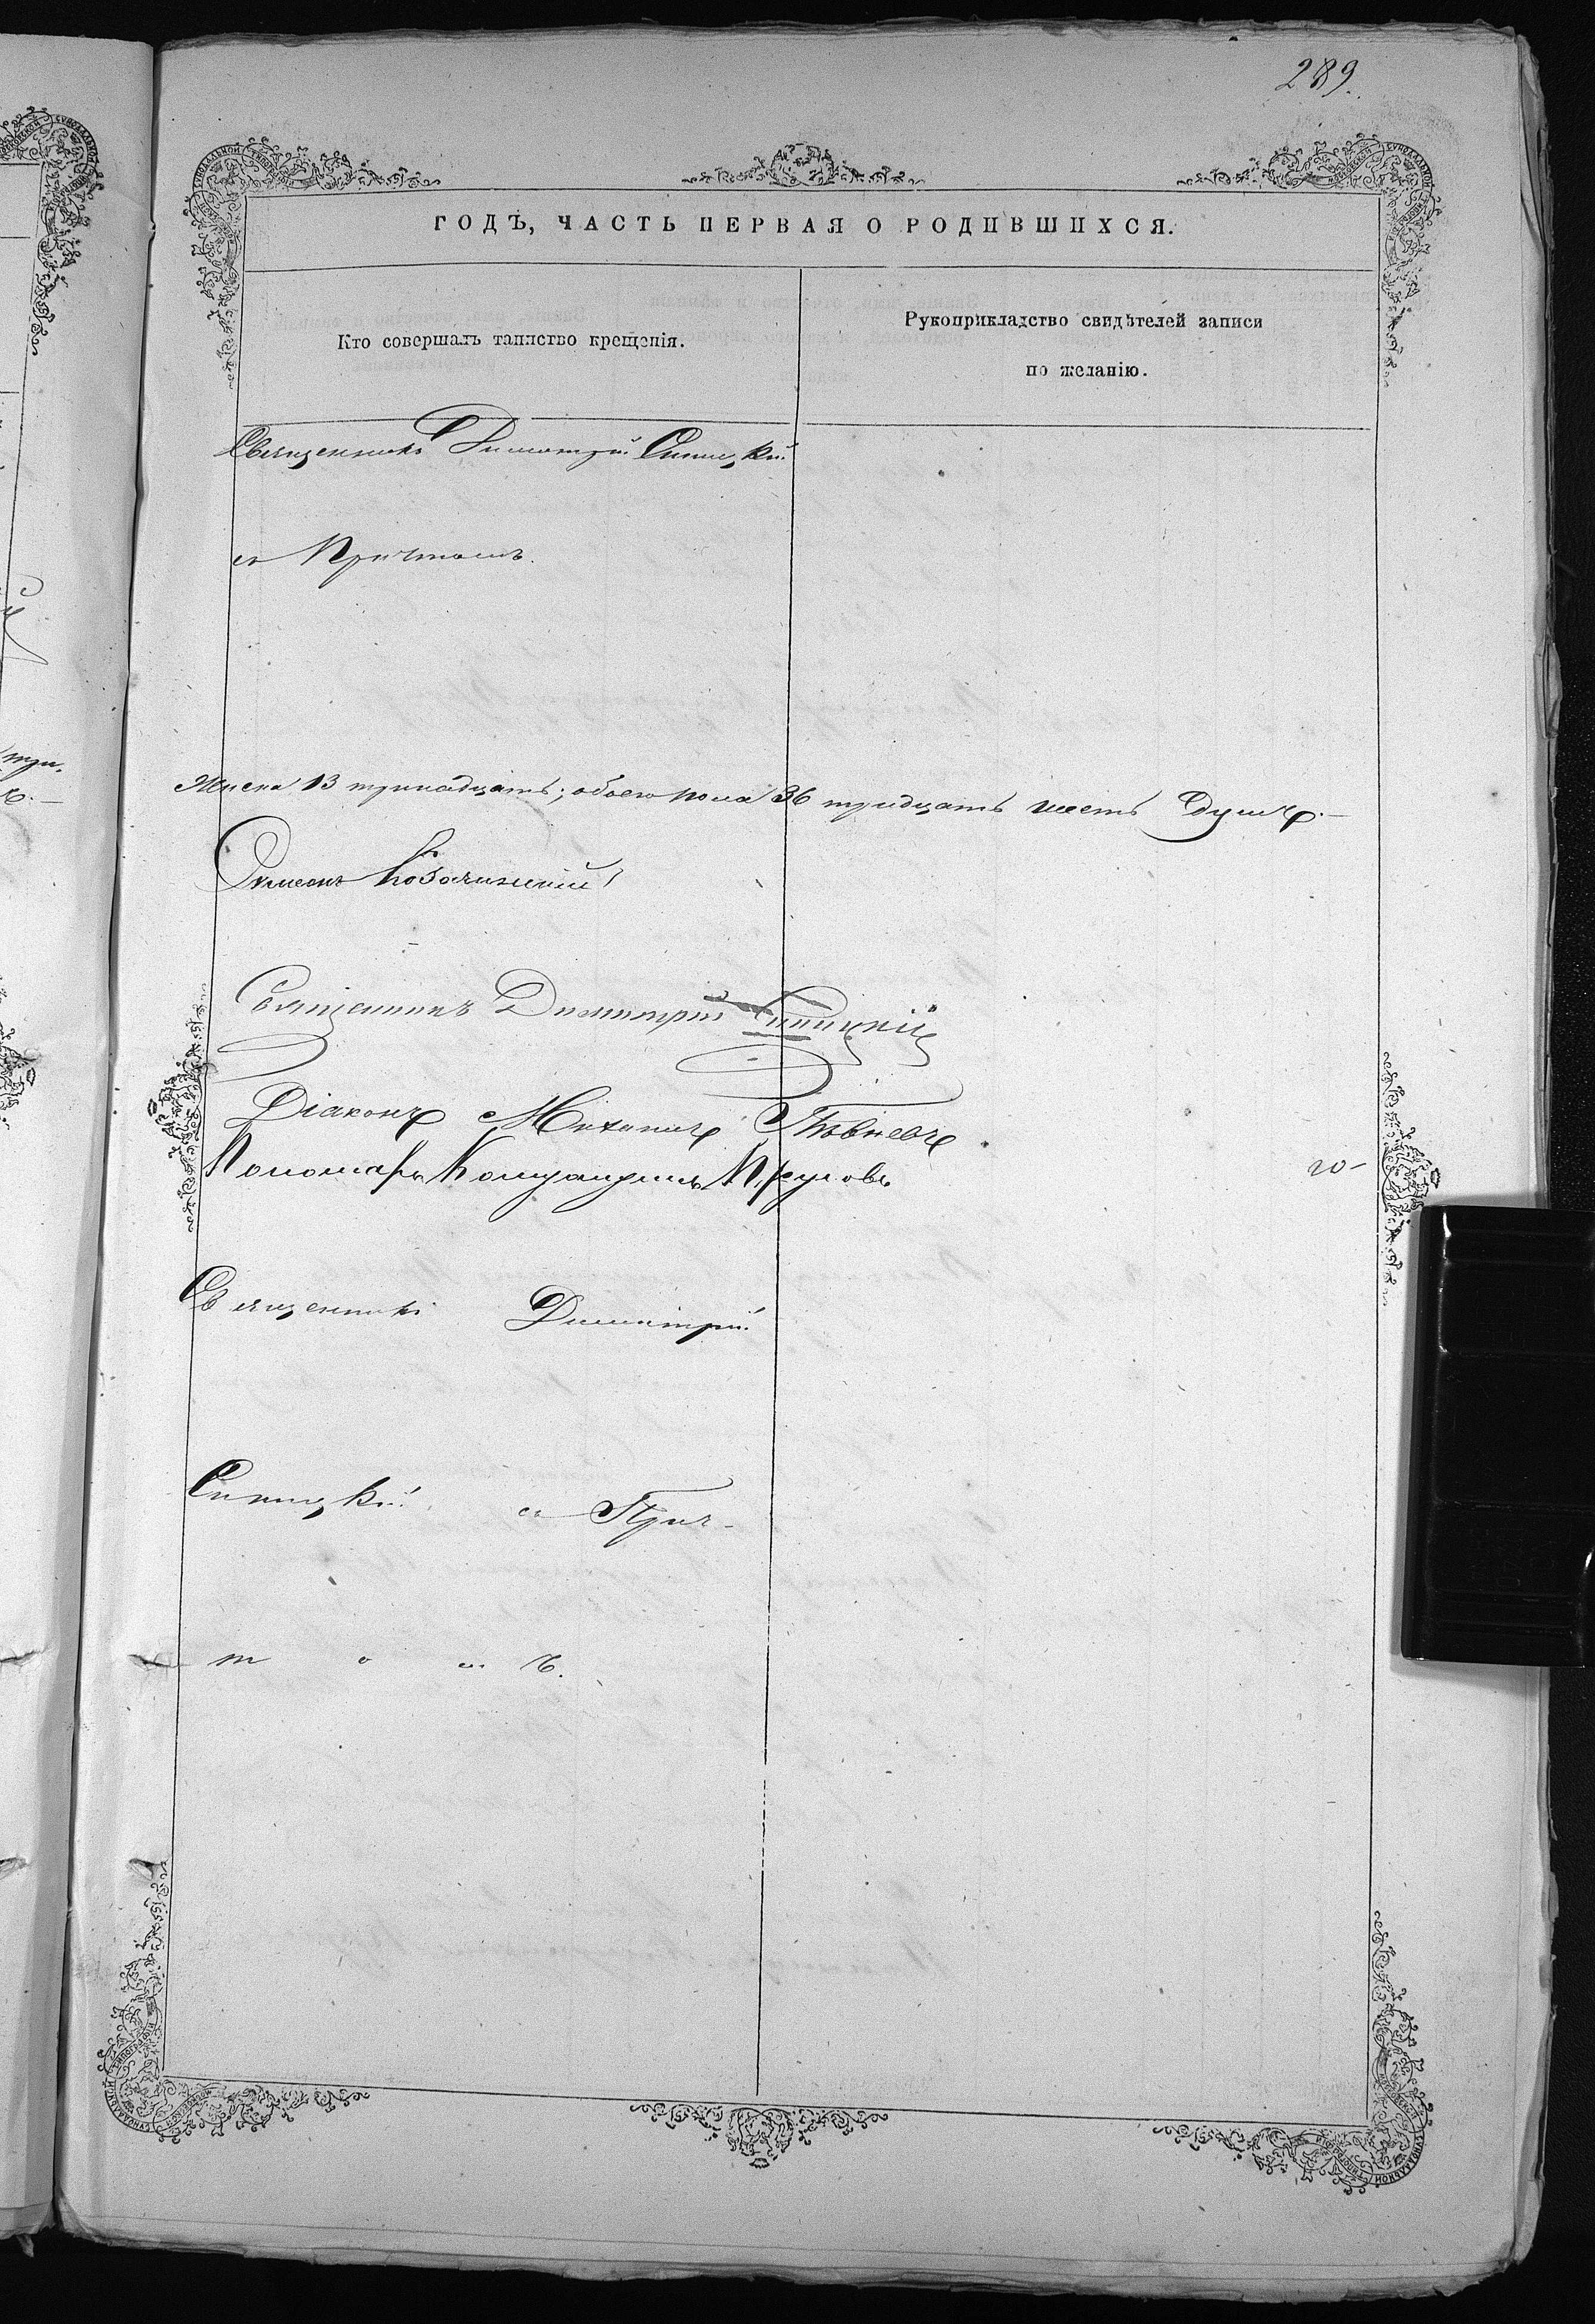 289.
ГОДЪ, ЧАСТЬ ПЕРВАЯ О РОДИВШИХСЯ.
Кто совершалъ таинство крещенія.
Рукоприкладство свидѣтелей записи
по желанію.
Священникъ Димитрій Синицкій
съ Причтомъ.
Женска 13 тринадцать; обоего пола 36 тридцать шесть душъ.—
Симеонъ
Священникъ Димитрій Синицкій
Діаконъ Михаилъ
Пономарь
20-
Священникъ Димитрій
Синицкій съ Прич-
т о м ъ.